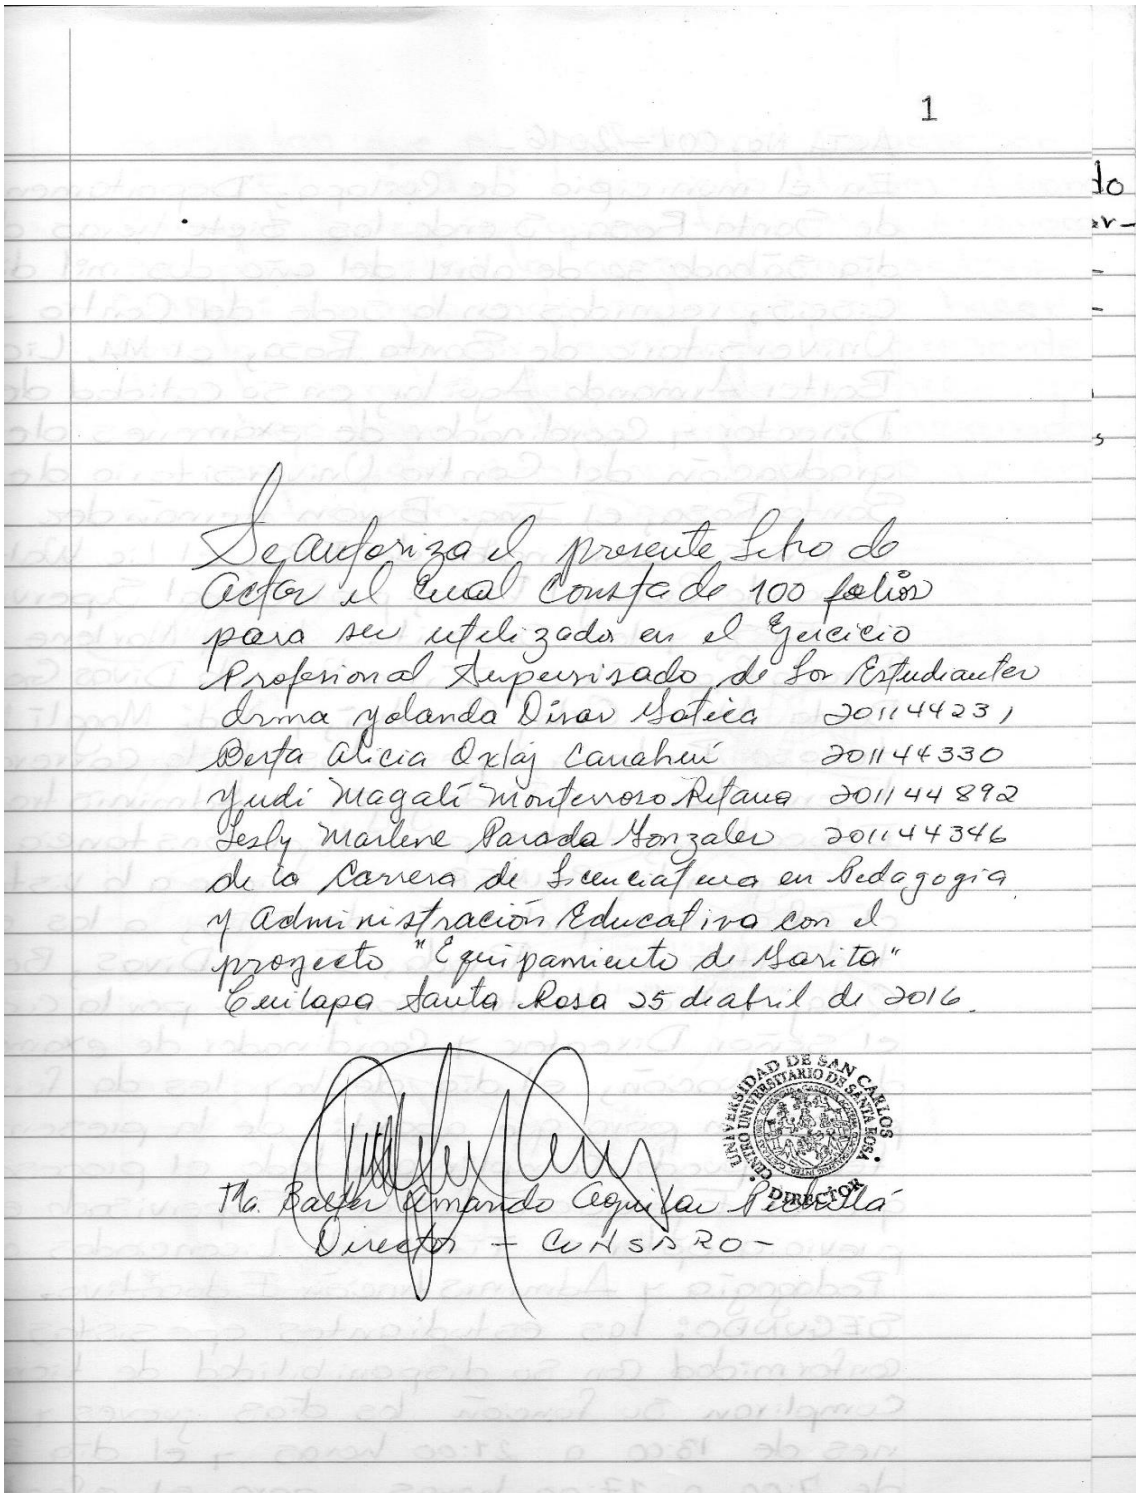 1
Se autoriza el presente Libro de
Actas el cual consta de 100 folios
para ser utilizado en el Ejercicio
Profesional Supervisado de los Estudiantes
Irma Yolanda Divas Gotica 201144231
Berta Alicia Oxlaj Canahuí 201144330
Yudi Magalí Monterroso Retana 201144892
Lesly Marlene Parada Gonzalez 201144346
de la Carrera de Licenciatura en Pedagogia
y Administración Educativa con el
proyecto "Equipamiento de Garita"
Cuilapa Santa Rosa 25 de abril de 2016.
UNIVERSIDAD DE SAN CARLOS
CENTRO UNIVERSITARIO DE SANTA ROSA
DIRECTOR
Ma. Balter Armando Aguilar
Director - CUNSARO-